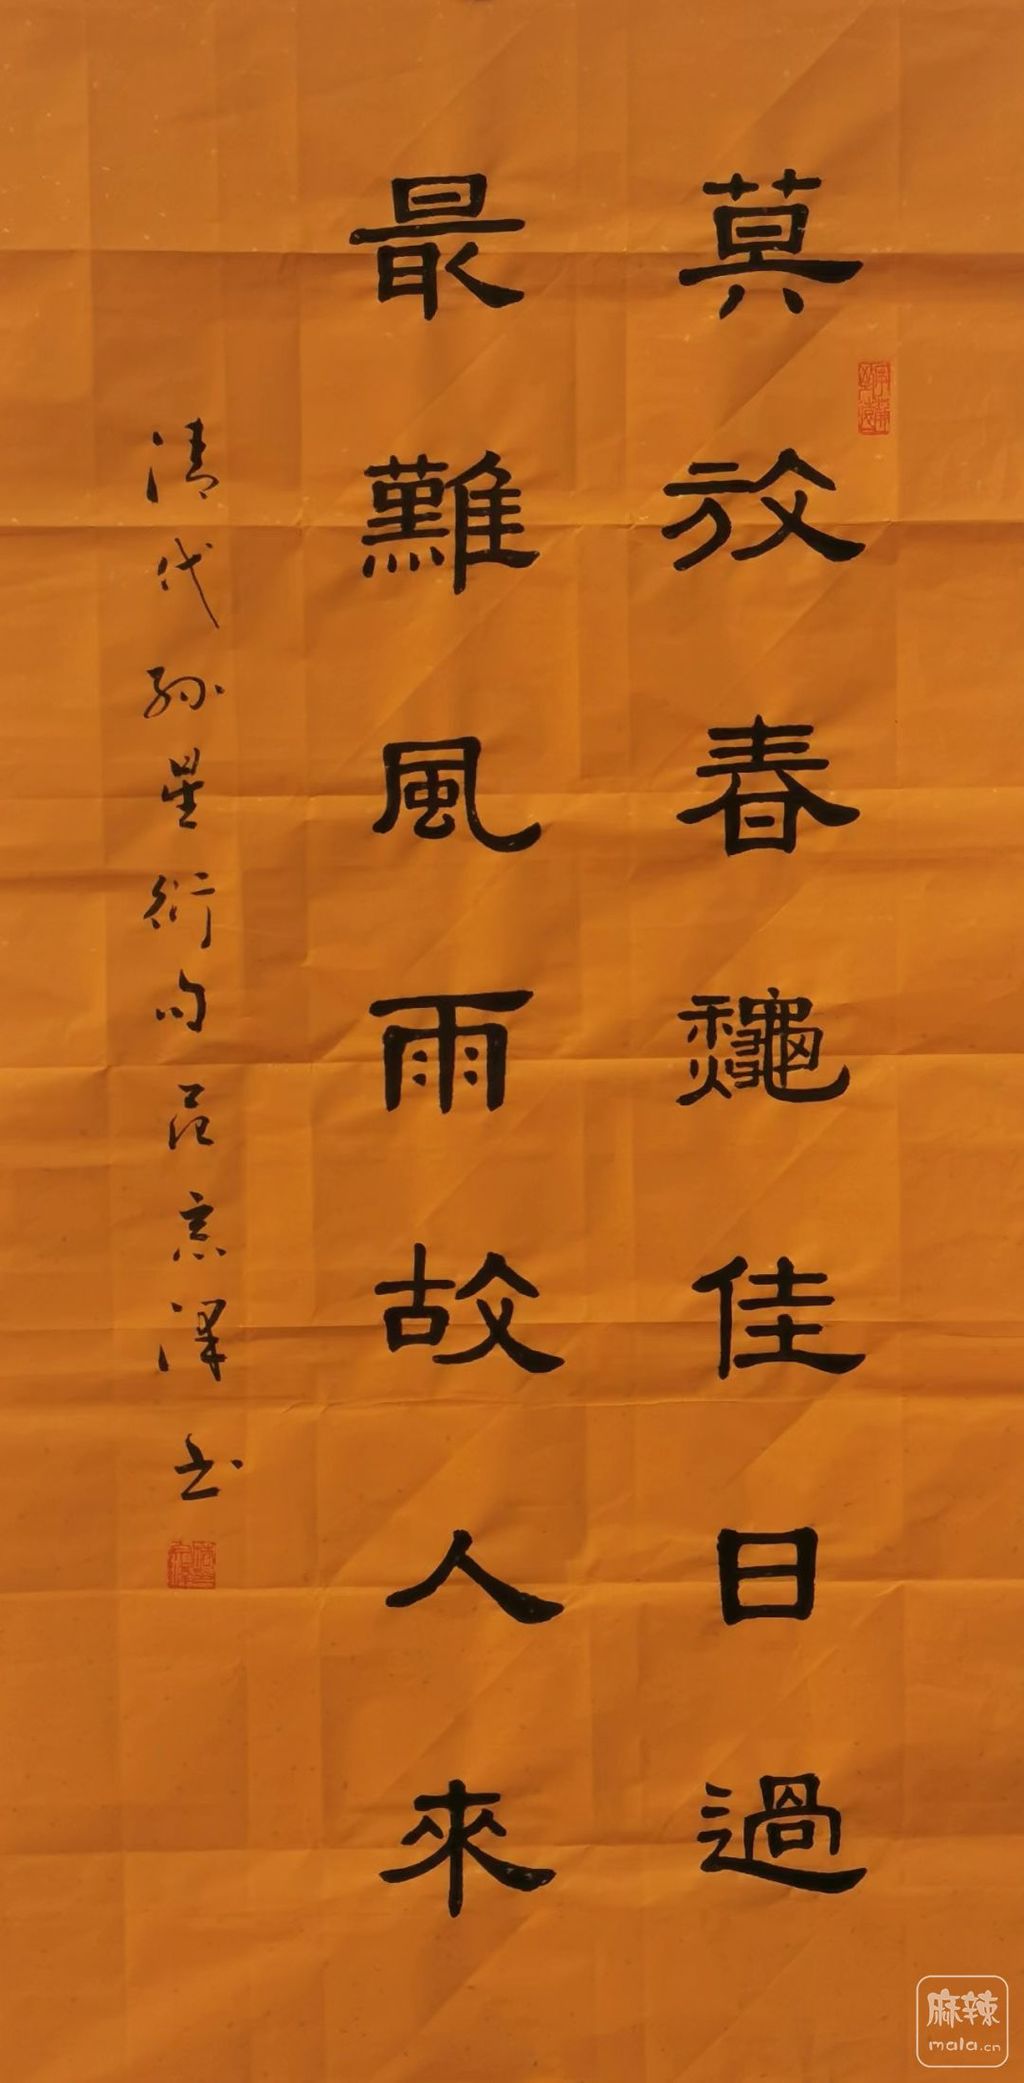 莫放春龝佳日過
最難風雨故人來
清代孙星衍句范宗泽书
麻辣
mala.cn